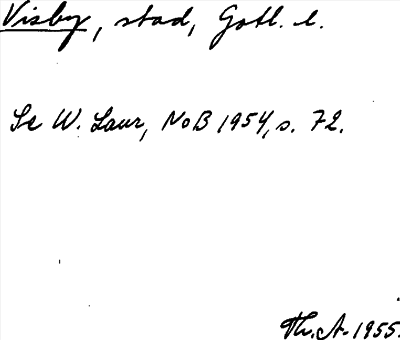 Visby, stad, Gotl. l.
Se W. Laur, NoB 1954, s. 72.
Th. A. 1955.